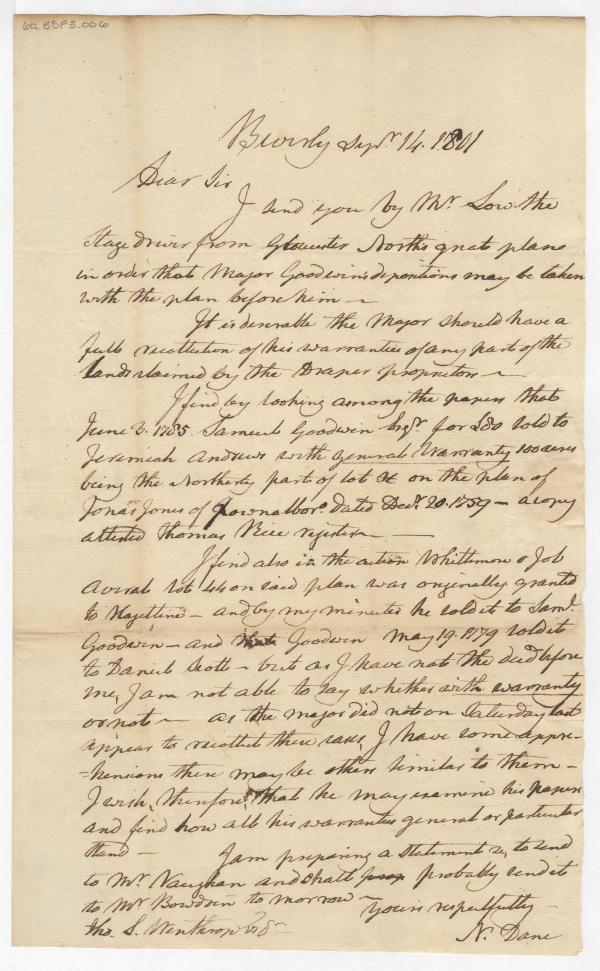 60.B5F3.006
Beverly Sepr. 14. 1801
Dear Sir
I send you by Mr. Low the
Stage driver from Glocester North's great plans
in order that Major Goodwin's depositions may be taken
with the plan before him —
It is desirable the Major should have a
full recollection of his warranties of any part of the
lands claimed by the Draper proprietors —
I find by looking among the papers that
June 3. 1785 Samuel Goodwin Esqr. for £80 sold to
Jeremiah Andrews with general Warranty 100 acres
being the Northerly part of lot on the plan of
Jonas Jones of Pownalboro. dated Decr. 20. 1759 — a copy
attested Thomas Rice register —
I find also in the action Whittemore v Job
Averal lot 44 on said plan was originally granted
to Hazeltine — and by my minutes he sold it to Saml.
Goodwin — and Goodwin May 19. 1779 sold it
to Daniel Scott — but as I have not the deed before
me, I am not able to say whether with warranty
or not — as the major did not on Saturday last
appear to recollect these cases, I have some appre-
=hensions there may be others similar to them —
I wish, therefore, that he may examine his papers
and find how all his warranties general or particular
stand — I am preparing a statement &c. to send
to Mr. Vaughan and shall probably send it
to Mr Bowdoin to morrow —
Yours respectfully —
Tho. L. Winthrop Esq —
N. Dane